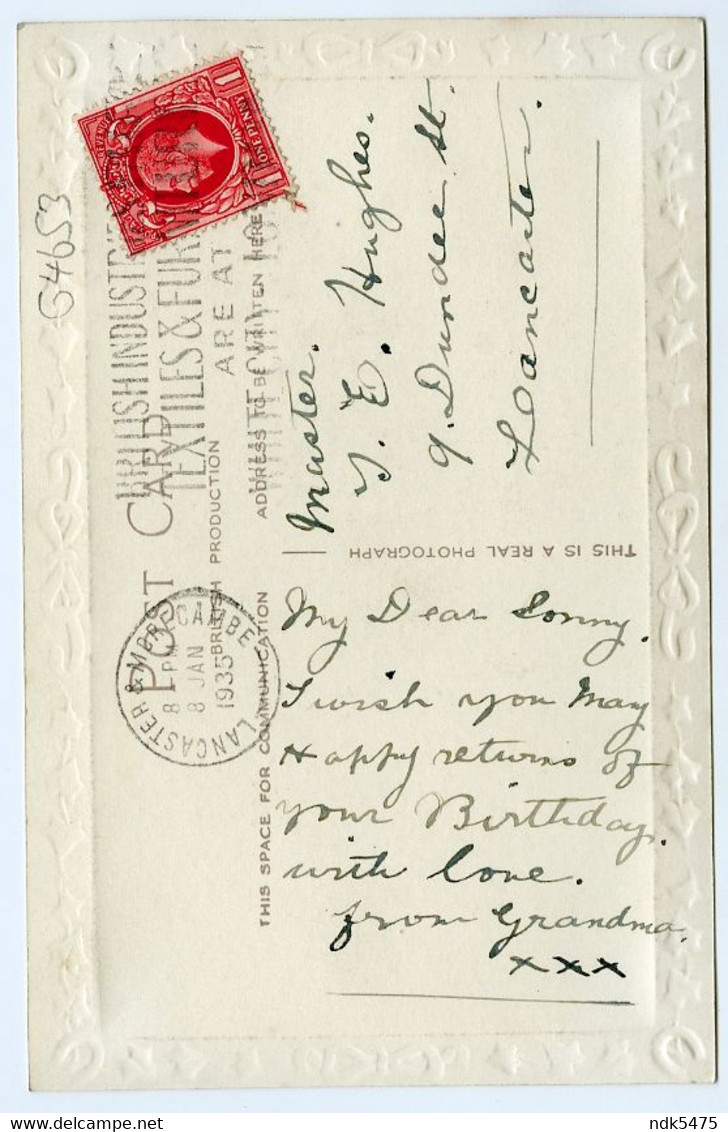 POST CARD
BRITISH PRODUCTION
THIS SPACE FOR COMMUNICATION
ADDRESS TO BE WRITTEN HERE
THIS IS A REAL PHOTOGRAPH
LANCASTER & MORECAMBE
8 PM
8 JAN
1935
BRITISH INDUSTRIES
TEXTILES & FURN
ARE AT
WHITE CITY
REVENUE
ONE PENNY
1 1
G4653
My Dear Sonny.
I wish you Many
Happy returns of
your Birthday.
with love.
from Grandma.
xxx
Master.
T. E. Hughes.
9. Dundee St.
Lancaster.
ndk5475